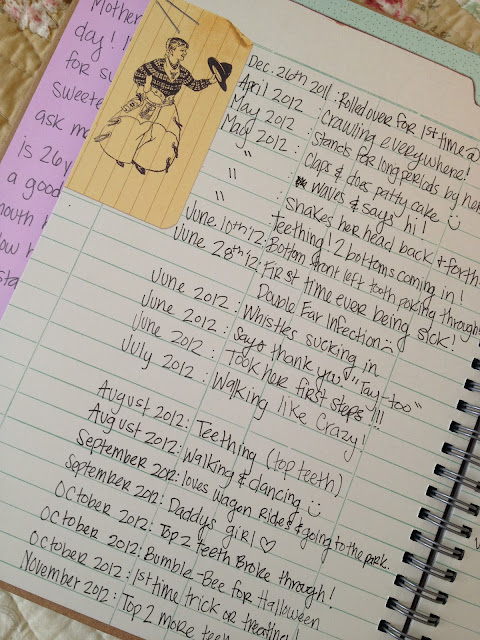 Mother
day! I
for su
sweete
ask mo
is 26 y
a good
mouth
low h
sta
Dec. 26th 2011 : Rolled over for 1st time @
April 2012 : Crawling everywhere!
May 2012 : Stands for long periods by her
May 2012 : Claps & does patty cake :)
" : waves & says hi!
" : shakes her head back & forth
" : Teething! 2 bottoms coming in!
June 10th '12: Bottom front left tooth poking through
June 28th '12: First time ever being sick!
Double Ear Infection :(
June 2012 : Whistles sucking in
June 2012 : Says thank you "Tay-too"
June 2012 : Took her first steps!!!
July 2012 : Walking like crazy!
August 2012: Teething (top teeth)
August 2012: Walking & dancing :)
September 2012: loves wagon rides & going to the park.
September 2012: Daddys girl ♡
October 2012: Top 2 teeth Broke through!
October 2012: Bumble-Bee for Halloween
October 2012: 1st time trick or treating!
November 2012: Top 2 more teet